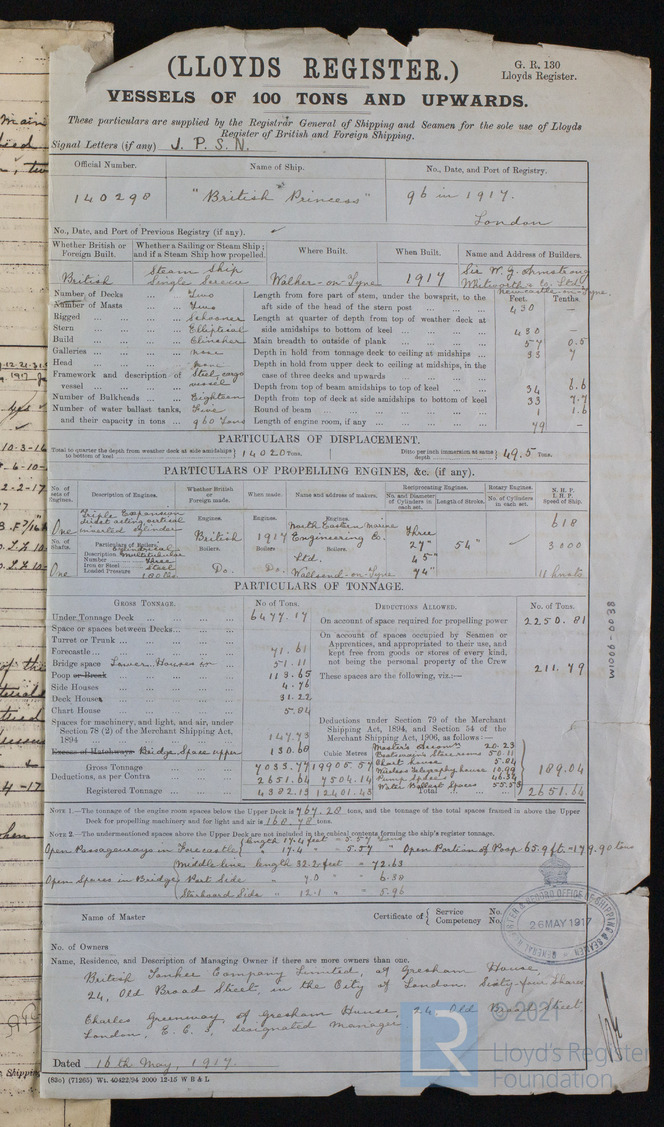 (LLOYDS REGISTER.)
G. R. 130
Lloyds Register.
VESSELS OF 100 TONS AND UPWARDS.
These particulars are supplied by the Registrar General of Shipping and Seamen for the sole use of Lloyds
Register of British and Foreign Shipping.
Signal Letters (if any) J. P. S. N.
Official Number. Name of Ship. No., Date, and Port of Registry.
140298 "British Princess" 96 in 1917.
London
No., Date, and Port of Previous Registry (if any).
Whether British or Foreign Built. Whether a Sailing or Steam Ship; and if a Steam Ship how propelled. Where Built. When Built. Name and Address of Builders.
British Steam Ship Single Screw Walker-on-Tyne 1917 Sir W. G. Armstrong Whitworth & Co. Ltd. Newcastle-on-Tyne.
Feet. Tenths
Number of Decks ... Two
Number of Masts ... Two
Rigged ... Schooner
Stern ... Elliptical
Build ... Clincher
Galleries ... none
Head ... none
Framework and description of vessel ... Steel cargo vessel
Number of Bulkheads ... Eighteen
Number of water ballast tanks, and their capacity in tons ... Five 960 Tons
Length from fore part of stem, under the bowsprit, to the aft side of the head of the stern post ... 430 —
Length at quarter of depth from top of weather deck at side amidships to bottom of keel ... 430 —
Main breadth to outside of plank ... 57 0.5
Depth in hold from tonnage deck to ceiling at midships ... 33 7
Depth in hold from upper deck to ceiling at midships, in the case of three decks and upwards
Depth from top of beam amidships to top of keel ... 34 6.6
Depth from top of deck at side amidships to bottom of keel 33 7.7
Round of beam ... 1 1.6
Length of engine room, if any ... 79 —
PARTICULARS OF DISPLACEMENT.
Total to quarter the depth from weather deck at side amidships to bottom of keel 14020 Tons. Ditto per inch immersion at same depth 49.5 Tons.
PARTICULARS OF PROPELLING ENGINES, &c. (if any).
No. of sets of Engines. Description of Engines. Whether British or Foreign made. When made. Name and address of makers. Reciprocating Engines. No. and Diameter of Cylinders in each set. Length of Stroke. Rotary Engines. No. of Cylinders in each set. N. H. P. I. H. P. Speed of Ship.
One Triple Expansion direct acting vertical inverted cylinder
Engines. British
Engines. 1917
Engines. North Eastern Marine Engineering Co. Ltd. Wallsend-on-Tyne
Three 27" 45" 74"
54"
618
3000
11 knots
No. of Shafts. One
Particulars of Boilers.
Description Cylindrical Multitubular
Number Three
Iron or Steel Steel
Loaded Pressure 180 lbs
Boilers. Do.
Boilers. Do.
Boilers.
PARTICULARS OF TONNAGE.
GROSS TONNAGE. No. of Tons. DEDUCTIONS ALLOWED. No. of Tons.
Under Tonnage Deck ... 6477.17
Space or spaces between Decks ...
Turret or Trunk ...
Forecastle ... 71.61
Bridge space Lower Houses in ... 51.11
Poop or Break ... 113.65
Side Houses ... 4.76
Deck Houses ... 31.22
Chart House ... 5.84
Spaces for machinery, and light, and air, under Section 78 (2) of the Merchant Shipping Act, 1894 ... 147.73
Excess of Hatchways Bridge Space upper 130.68
Cubic Metres
Gross Tonnage ... 7033.77 19905.57
Deductions, as per Contra ... 2651.64 7504.14
Registered Tonnage ... 4382.13 12401.43
On account of space required for propelling power 2250.81
On account of spaces occupied by Seamen or Apprentices, and appropriated to their use, and kept free from goods or stores of every kind, not being the personal property of the Crew 211.79
These spaces are the following, viz.:—
Deductions under Section 79 of the Merchant Shipping Act, 1894, and Section 54 of the Merchant Shipping Act, 1906, as follows:—
Master's Accomn. 20.23
Boatswain's Store room 50.11
Chart house 5.84
Wireless Telegraphy house 10.99
Pump Spaces 46.34
Water Ballast Spaces 55.53
189.04
Total ... 2651.64
NOTE 1.—The tonnage of the engine room spaces below the Upper Deck is 767.28 tons, and the tonnage of the total spaces framed in above the Upper
Deck for propelling machinery and for light and air is 160.78 tons.
NOTE 2.—The undermentioned spaces above the Upper Deck are not included in the cubical contents forming the ship's register tonnage.
Open Passageways in Forecastle { length 17.4 feet = 5.57 tons
" 17.4 " = 5.57 " Open Portion of Poop 65.9 ft. = 179.90 tons
Open Spaces in Bridge { Middle line length 32.2 feet = 72.63
Port Side " 7.0 " " 6.30
Starboard Side " 12.1 " " 5.96
Name of Master Certificate of { Service No.
Competency No.
REGISTER & RECORD OFFICE OF SHIPPING & SEAMEN
GENERAL
26 MAY 1917
No. of Owners
Name, Residence, and Description of Managing Owner if there are more owners than one.
British Tanker Company Limited, of Gresham House,
24, Old Broad Street, in the City of London. Sixty-four Shares
Charles Greenway, of Gresham House, 24, Old Broad Street,
London, E.C., designated Manager
Dated 16th May, 1917.
(836) (71265) Wt. 40422/94 2000 12-15 W B & L
W1006-0038
LR
© 2021
Lloyd's Register
Foundation